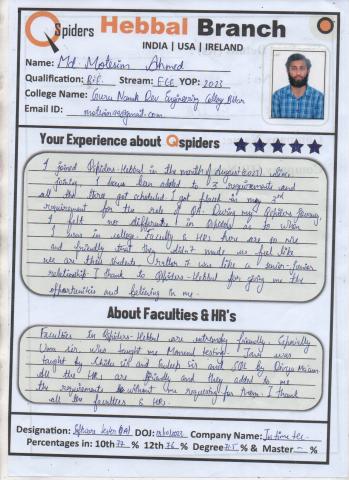 Qspiders Hebbal Branch
INDIA | USA | IRELAND
Name: Md. Motesim Ahmed
Qualification: B.E. Stream: ECE YOP: 2023
College Name: Guru Nanak Dev Engineering College Bidar
Email ID:
Your Experience about Qspiders
I joined Qspiders-Hebbal in the month of August (2023). Since
joining, I have been added to 3 requirements and
all three got scheduled. I got placed in my 3rd
requirement for the role of QA. During my Qspiders Journey
I felt no difference in Qspiders as to when
I was in college. Faculty & HR's here are so nice
and friendly that they didn't made us feel like
we are their students rather it was like a senior-junior
relationship. I thank to QSpiders-Hebbal for giving me the
opportunities and believing in me.
About Faculties & HR's
Faculties in Qspiders-Hebbal are extremely friendly. Especially
Uma sir, who taught me Manual testing. Java was
taught by sir and sir and SQL by Divya Ma'am.
All the HR's are friendly and they added to me
the requirements without me requesting for them. I thank
all the faculties & HR's.
Designation: Software DOJ: Company Name: In time tec.
Percentages in: 10th 77 % 12th 76 % Degree 7.5 % & Master - %